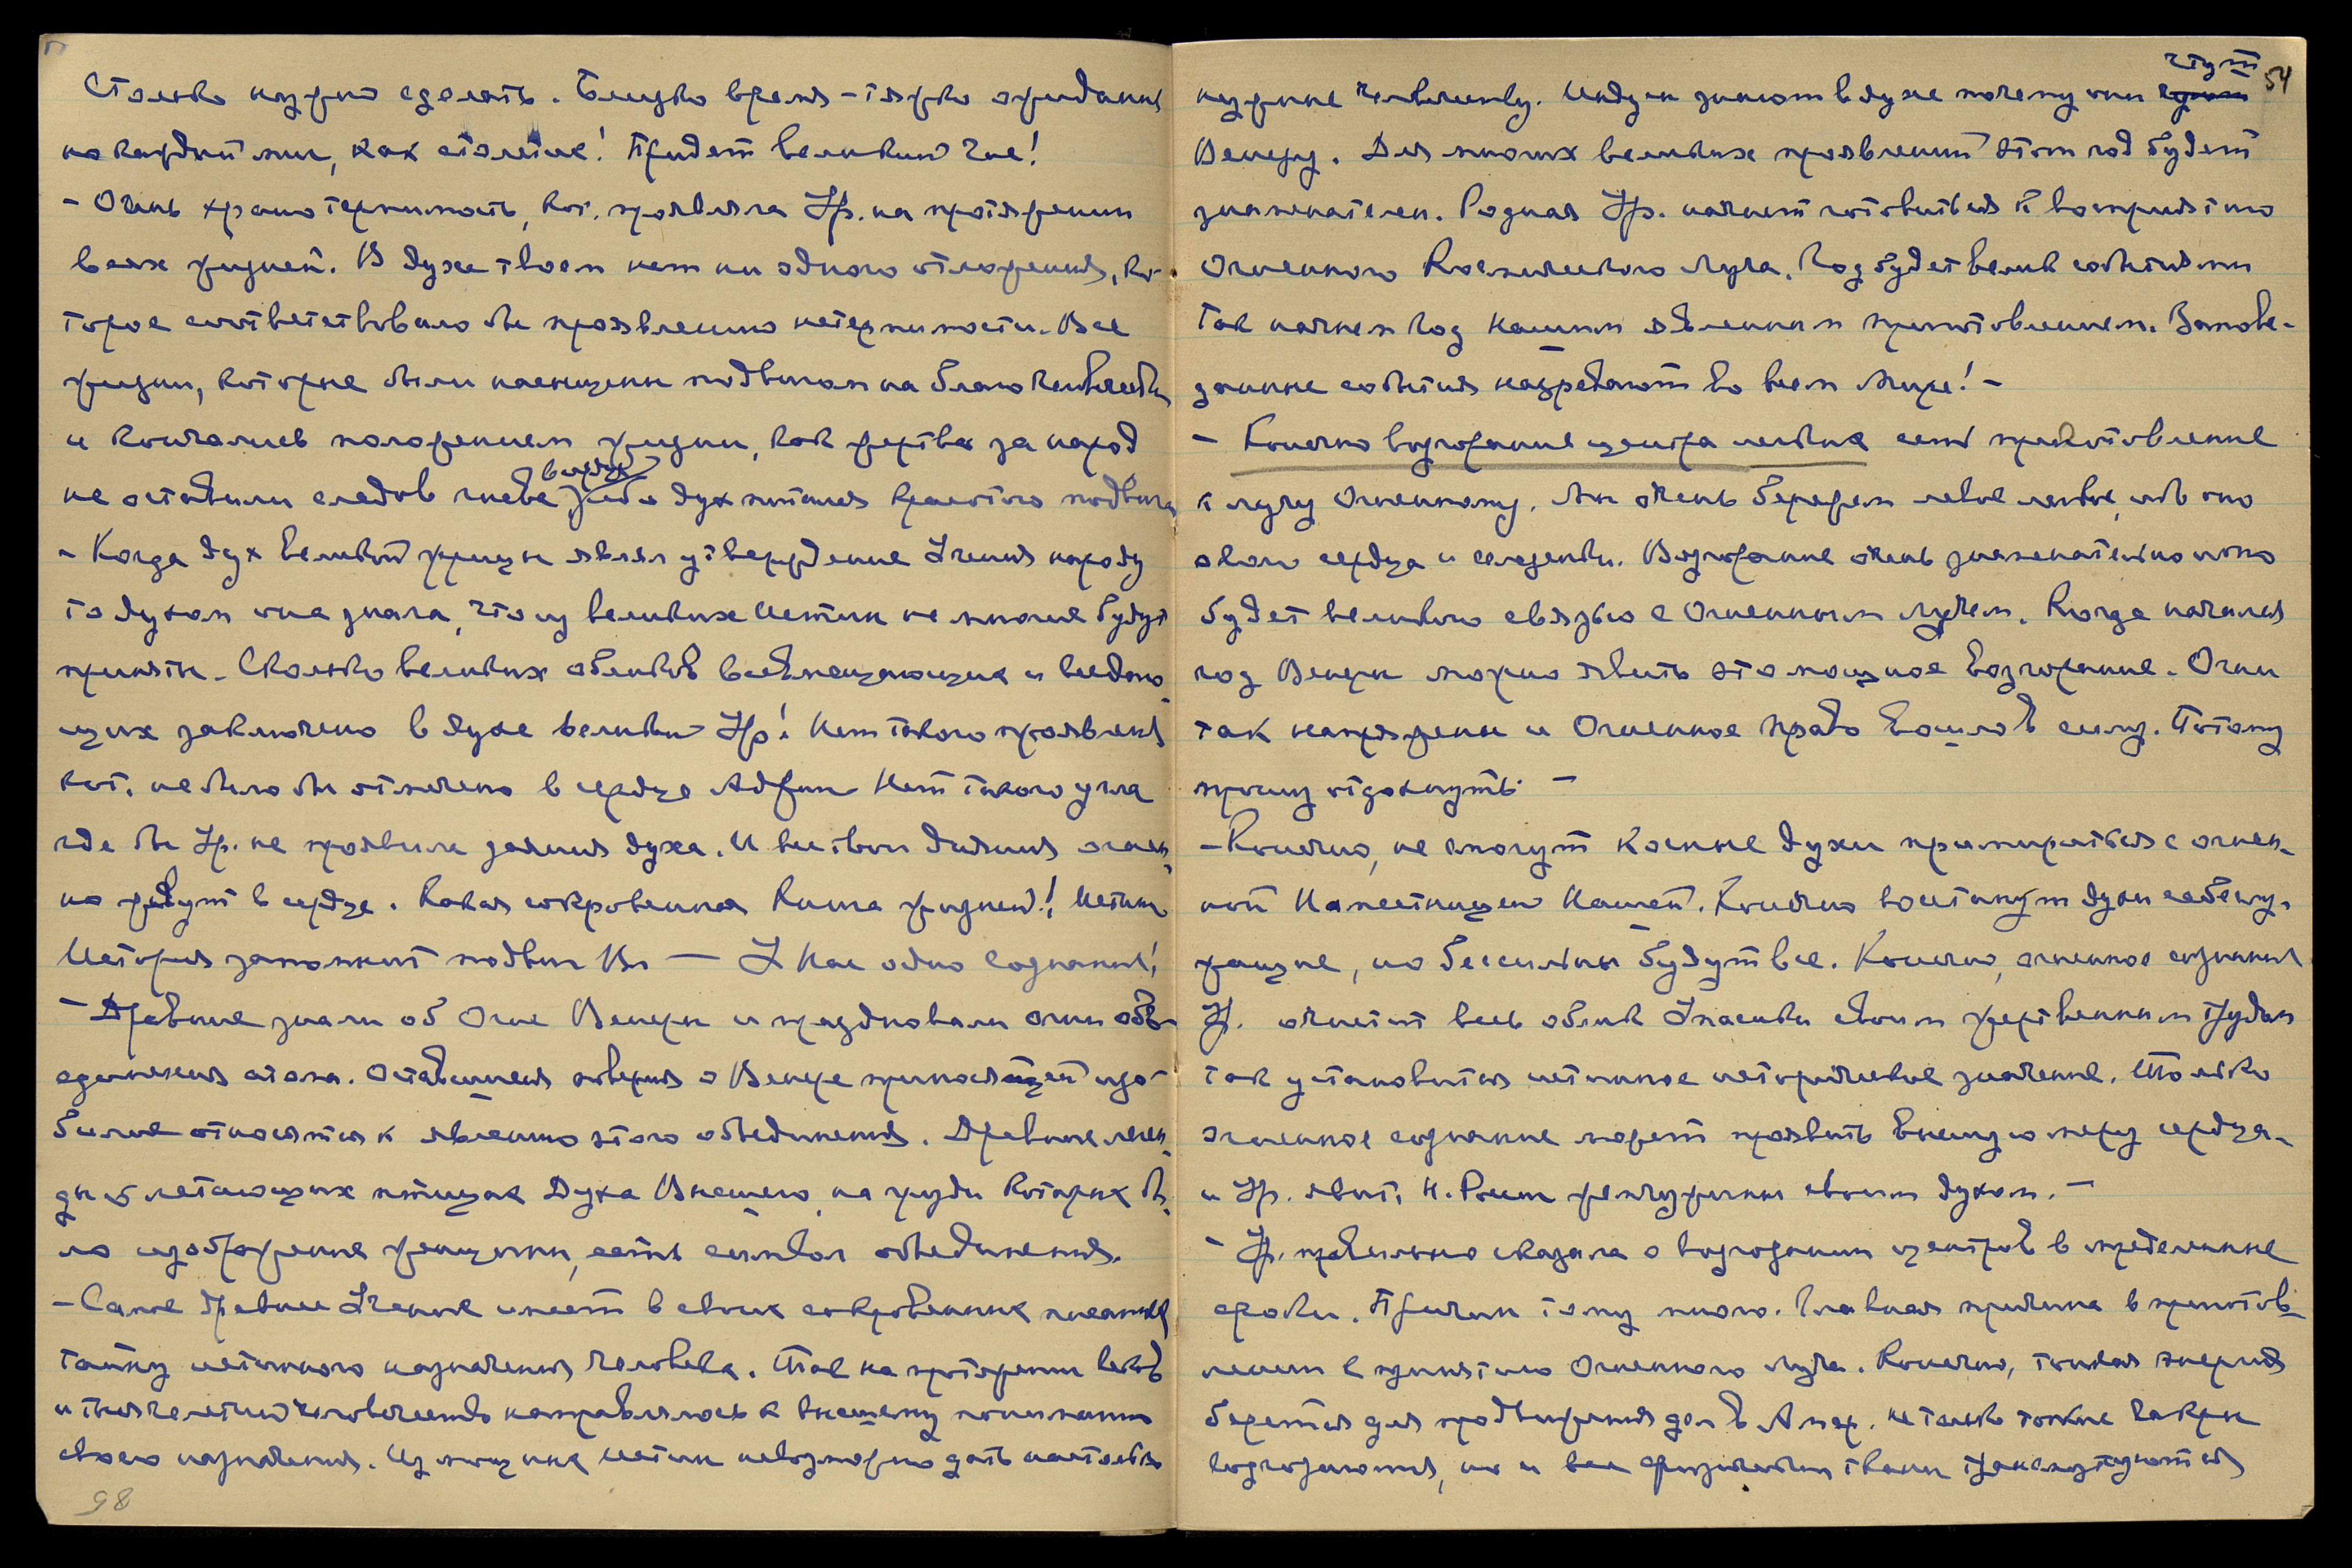 Столько нужно сделать. Близко время – тяжко ожидание
но каждый миг, как столетие! Придет великий час!
– Очень храню терпимость, кот. проявляла Ур. на протяжении
всех жизней. В духе твоем нет ни одного отложения, ко-
торое соответствовало бы проявлению нетерпимости. Все
жизни, которые были насыщены подвигом на благо человечества
и кончались положением жизни, как жертва за народ
не оставили следов гнева, ибо дух питался красотою подвига
– Когда дух великой жрицы являл утверждение Учения народу
то духом она знала, что из великих Истин не многие будут
приняты. Сколько великих обликов всевмещающих и вседаю-
щих заключено в духе великой Ур! Нет такого проявления
кот. не было бы отмечено в сердце Адфии Нет такого угла
где бы Ур. не проявила даяния духа. И все твои даяния огнен-
но живут в сердце. Какая сокровенная Книга жизней! Истин
История запомнит подвиг Вл — У Нас одно сознание!
– Древние знали об Огне Венеры и праздновали огни объ-
единения атома. Оставшиеся поверия о Венере приносящей изо-
билие относятся к явлению этого объединения. Древние леген-
ды о летающих птицах Духа Высшего, на груди которых бы-
ло изображение женщины, есть символ объединения.
– Самое древнее Учение имеет в своих сокровенных писаниях
тайну истинного назначения человека. Так на протяжении веков
и тысячелетий человечество направлялось к высшему пониманию
своего назначения. Из мощных истин невозможно дать настолько
98
чтут 54
нужные человечеству. Индусы знают в духе почему они
Венеру. Для многих великих проявлений этот год будет
знаменателен. Родная Ур. начнет готовиться к восприятию
Огненного Космического Луча. Год будет велик событиями
Так начнем год Нашим явленным приготовлением. Запове-
данные события назревают во всем Мире! –
– Конечно возгорание центра легких есть приготовление
к лучу Огненному. Мы очень бережем левое легкое, ибо оно
около сердца и селезенки. Возгорание очень знаменательно ибо
будет великою связью с Огненным лучом. Когда начался
год Венеры можно явить это мощное возгорание. Огни
так напряжены и Огненное право вошло в силу. Потому
прошу отдохнуть. –
– Конечно, не смогут косные духи примириться с огнен-
ной Наместницей Нашей. Конечно восстанут духи себе слу-
жащие, но бессильны будут все. Конечно, огненное сознание
Ур. очистит весь облик Спасителя своим жертвенным трудом
так установится истинное историческое значение. Только
огненное сознание может проявить высшую меру сердца –
и Ур. явит, Н. Росси жемчужины своим духом. –
– Ур. правильно сказала о возгорании центров в предельные
сроки. Причин тому много. Главная причина в приготов-
лении к принятию Огненного Луча. Конечно, тонкая энергия
берется для продвижения дел в Амер. не только тонкие чакры
возгораются, но и все физические ткани трансмутируются